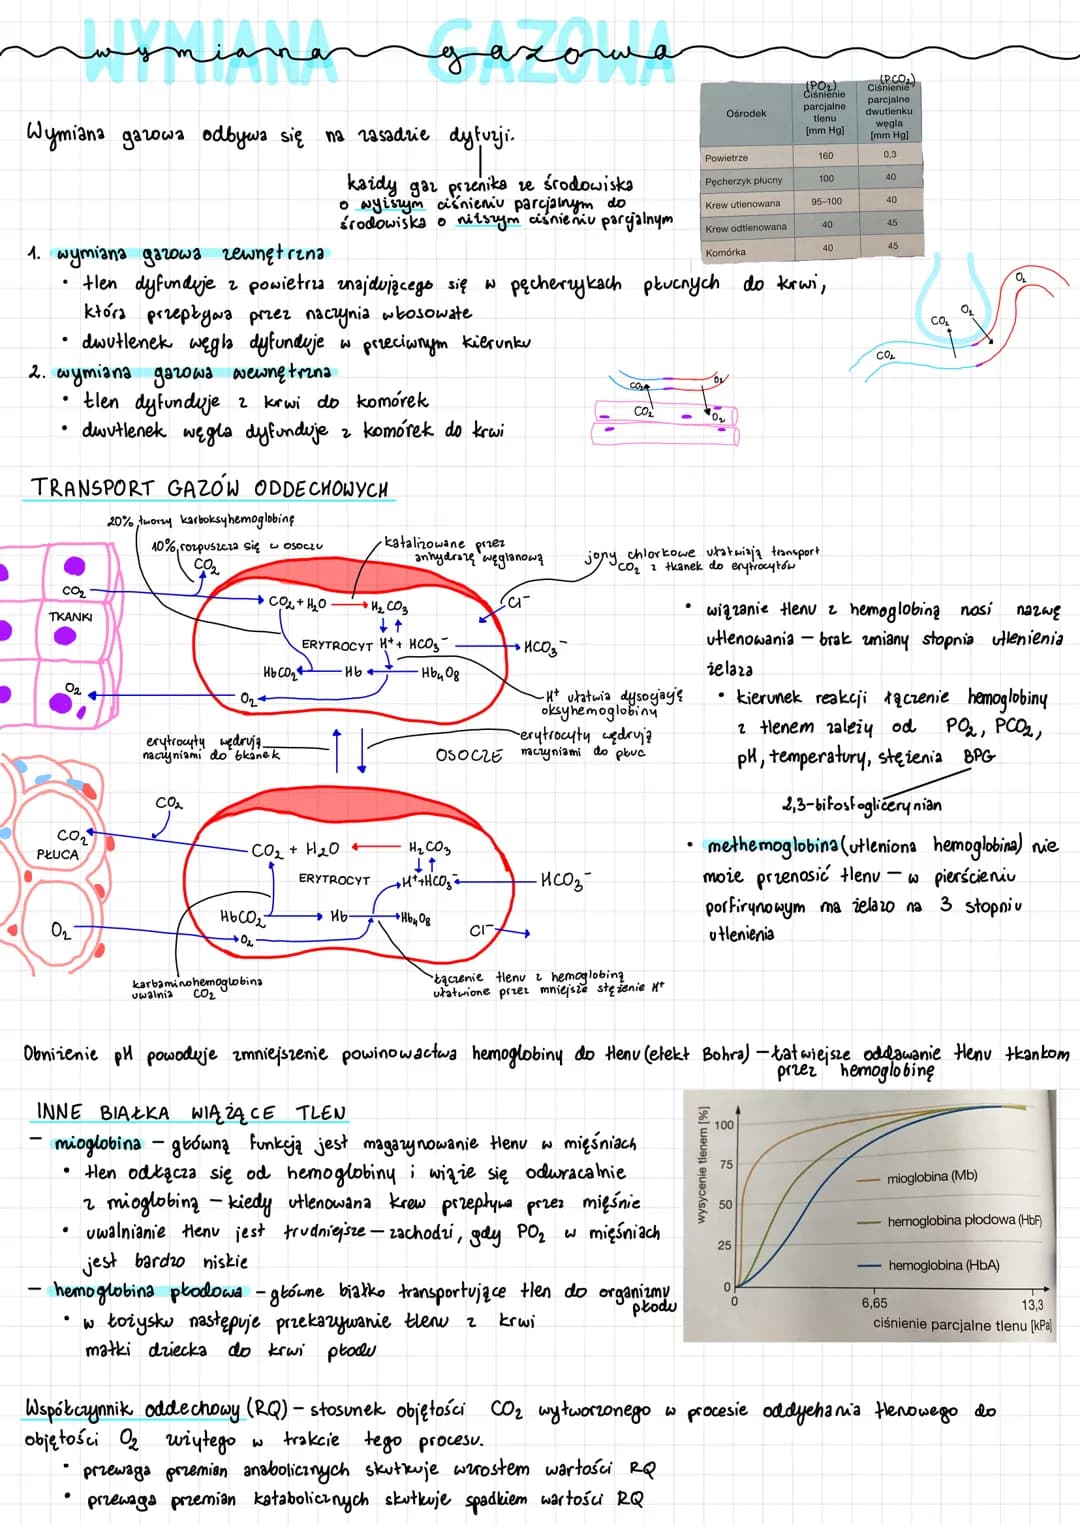 WYMIANA GAZOWA
wymiana gazowa
Wymiana gazowa odbywa się na zasadzie dyfuzji.
każdy gaz przenika ze środowiska
o wyższym ciśnieniu parcjalnym do
środowiska o niższym ciśnieniu parcjalnym
Ośrodek
(PO₂)
Ciśnienie
parcjalne
tlenu
[mm Hg]
(PCO₂)
Ciśnienie
parcjalne
dwutlenku
węgla
[mm Hg]
Powietrze 160 0,3
Pęcherzyk płucny 100 40
Krew utlenowana 95–100 40
Krew odtlenowana 40 45
Komórka 40 45
1. wymiana gazowa zewnętrzna
• tlen dyfunduje z powietrza znajdującego się w pęcherzykach płucnych do krwi,
która przepływa przez naczynia włosowate
• dwutlenek węgla dyfunduje w przeciwnym kierunku
2. wymiana gazowa wewnętrzna
• tlen dyfunduje z krwi do komórek
• dwutlenek węgla dyfunduje z komórek do krwi
CO₂
O₂
CO₂
O₂
CO₂
O₂
CO₂
O₂
TRANSPORT GAZÓW ODDECHOWYCH
20% tworzy karboksyhemoglobinę
10% rozpuszcza się w osoczu
CO₂
katalizowane przez
anhydrazę węglanową
jony chlorkowe ułatwiają transport
CO₂ z tkanek do erytrocytów
CO₂
TKANKI
O₂
CO₂ + H₂O → H₂CO₃
Cl⁻
ERYTROCYT H⁺ + HCO₃⁻
HCO₃⁻
HbCO₂ Hb Hb₄O₈
O₂
H⁺ ułatwia dysocjację
oksyhemoglobiny
erytrocyty wędrują
naczyniami do tkanek
OSOCZE
erytrocyty wędrują
naczyniami do płuc
CO₂
CO₂
PŁUCA
O₂
CO₂ + H₂O ← H₂CO₃
ERYTROCYT H⁺+HCO₃⁻
HCO₃⁻
HbCO₂ Hb Hb₄O₈
O₂
Cl⁻
karbaminohemoglobina
uwalnia CO₂
łączenie tlenu z hemoglobiną
ułatwione przez mniejsze stężenie H⁺
• wiązanie tlenu z hemoglobiną nosi nazwę
utlenowania – brak zmiany stopnia utlenienia
żelaza
• kierunek reakcji łączenie hemoglobiny
z tlenem zależy od PO₂, PCO₂,
pH, temperatury, stężenia BPG
2,3-bifosfoglicerynian
• methemoglobina (utleniona hemoglobina) nie
może przenosić tlenu – w pierścieniu
porfirynowym ma żelazo na 3 stopniu
utlenienia
Obniżenie pH powoduje zmniejszenie powinowactwa hemoglobiny do tlenu (efekt Bohra) – łatwiejsze oddawanie tlenu tkankom
przez hemoglobinę
INNE BIAŁKA WIĄŻĄCE TLEN
– mioglobina – główną funkcją jest magazynowanie tlenu w mięśniach
• tlen odłącza się od hemoglobiny i wiąże się odwracalnie
z mioglobiną – kiedy utlenowana krew przepływa przez mięśnie
• uwalnianie tlenu jest trudniejsze – zachodzi, gdy PO₂ w mięśniach
jest bardzo niskie
– hemoglobina płodowa – główne białko transportujące tlen do organizmu
płodu
• w łożysku następuje przekazywanie tlenu z krwi
matki dziecka do krwi płodu
wysycenie tlenem [%]
100
75
50
25
0
0
6,65
13,3
mioglobina (Mb)
hemoglobina płodowa (HbF)
hemoglobina (HbA)
ciśnienie parcjalne tlenu [kPa]
Współczynnik oddechowy (RQ) – stosunek objętości CO₂ wytworzonego w procesie oddychania tlenowego do
objętości O₂ zużytego w trakcie tego procesu.
• przewaga przemian anabolicznych skutkuje wzrostem wartości RQ
• przewaga przemian katabolicznych skutkuje spadkiem wartości RQ